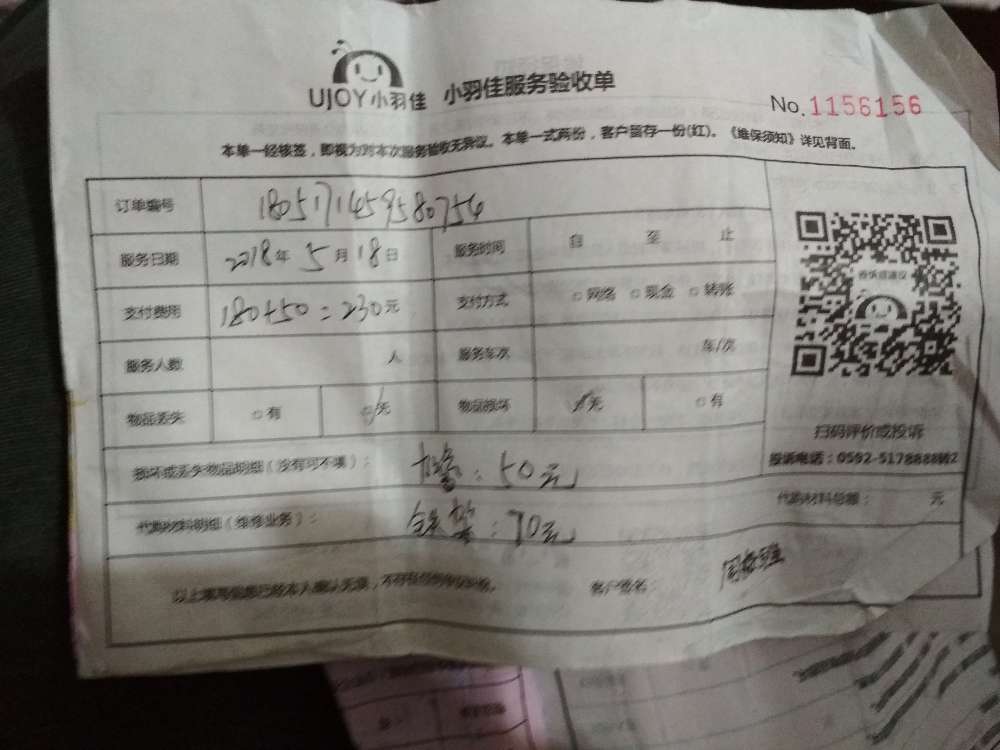 UJOY小羽佳 小羽佳服务验收单
No.1156156
本单一经核签，即视为对本次服务验收无异议。本单一式两份，客户留存一份(红)。《维保须知》详见背面。
订单编号 1805171459580754
服务日期 2018年5月18日 服务时间 自 至 止
支付费用 180+50=230元 支付方式 □网络 □现金 □转账
服务人数 人 服务车次 车/次
物品丢失 □有 □无 物品损坏 □无 □有
扫码评价或投诉
损坏或丢失物品明细（没有可不填）： : 50元
投诉电话：0592-5178888转2
代购材料明细（维修业务）： 铁架：70元
代购材料总额： 元
以上填写信息已经本人确认无误，不存在任何争议纠纷。 客户签名：